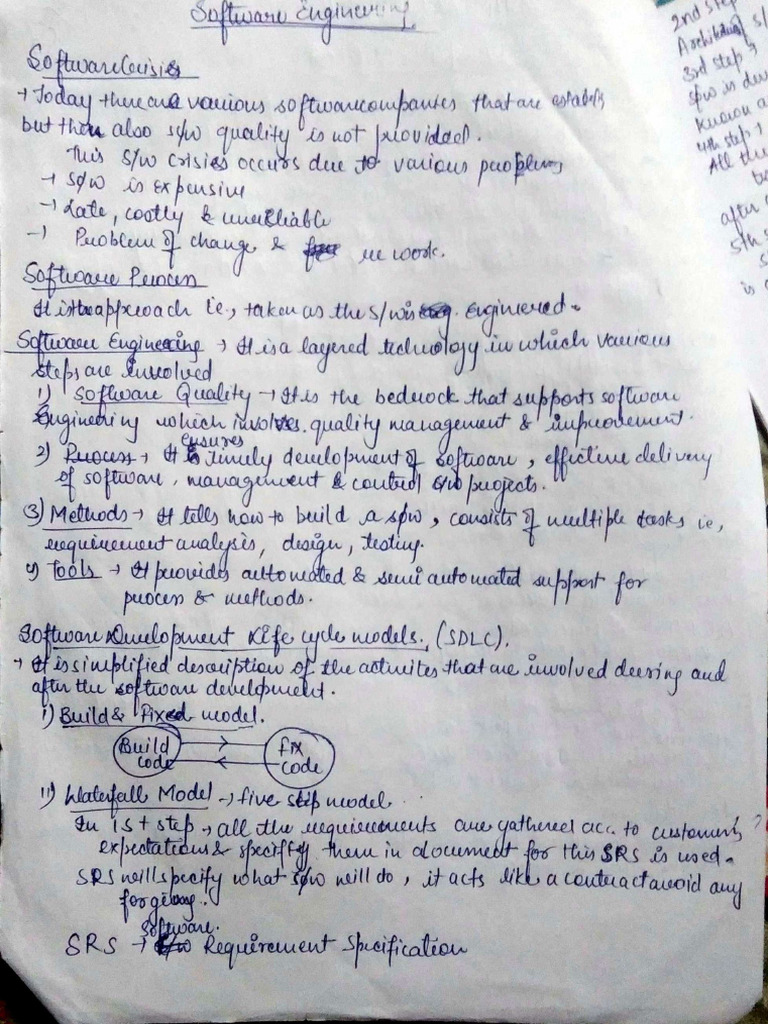 Software Engineering.
Software Crisis
→ Today there are various software companies that are establis
but then also s/w quality is not provided.
This s/w crisies occurs due to various problems
→ S/w is expensive
→ Late, costly & unreliable
→ Problem of change & re work.
Software Process
It is the approach i.e., taken as the s/w is Engineered.
Software Engineering → It is a layered technology in which various
steps are involved
1) Software Quality → It is the bedrock that supports software
Engineering which involves quality management & improvement.
2) Process → It ensures timely development of software, effective delivery
of software, management & control s/w projects.
3) Methods → It tells how to build a s/w, consists of multiple tasks ie,
requirement analysis, design, testing.
4) Tools → It provides automated & semi automated support for
process & methods.
Software Development Life cycle models. (SDLC).
→ It is simplified description of the activites that are involved during and
after the software development.
i) Build & Fixed model.
Build code
fix code
ii) Waterfall Model → five step model
In 1st step → all the requirements are gathered acc. to customers
expectations & specifify them in document for this SRS is used.
SRS will specify what s/w will do, it acts like a contract avoid any
SRS → Software Requirement Specification
2nd step
3rd step
s/w is
known a
4th step
All the
after
5th s
is